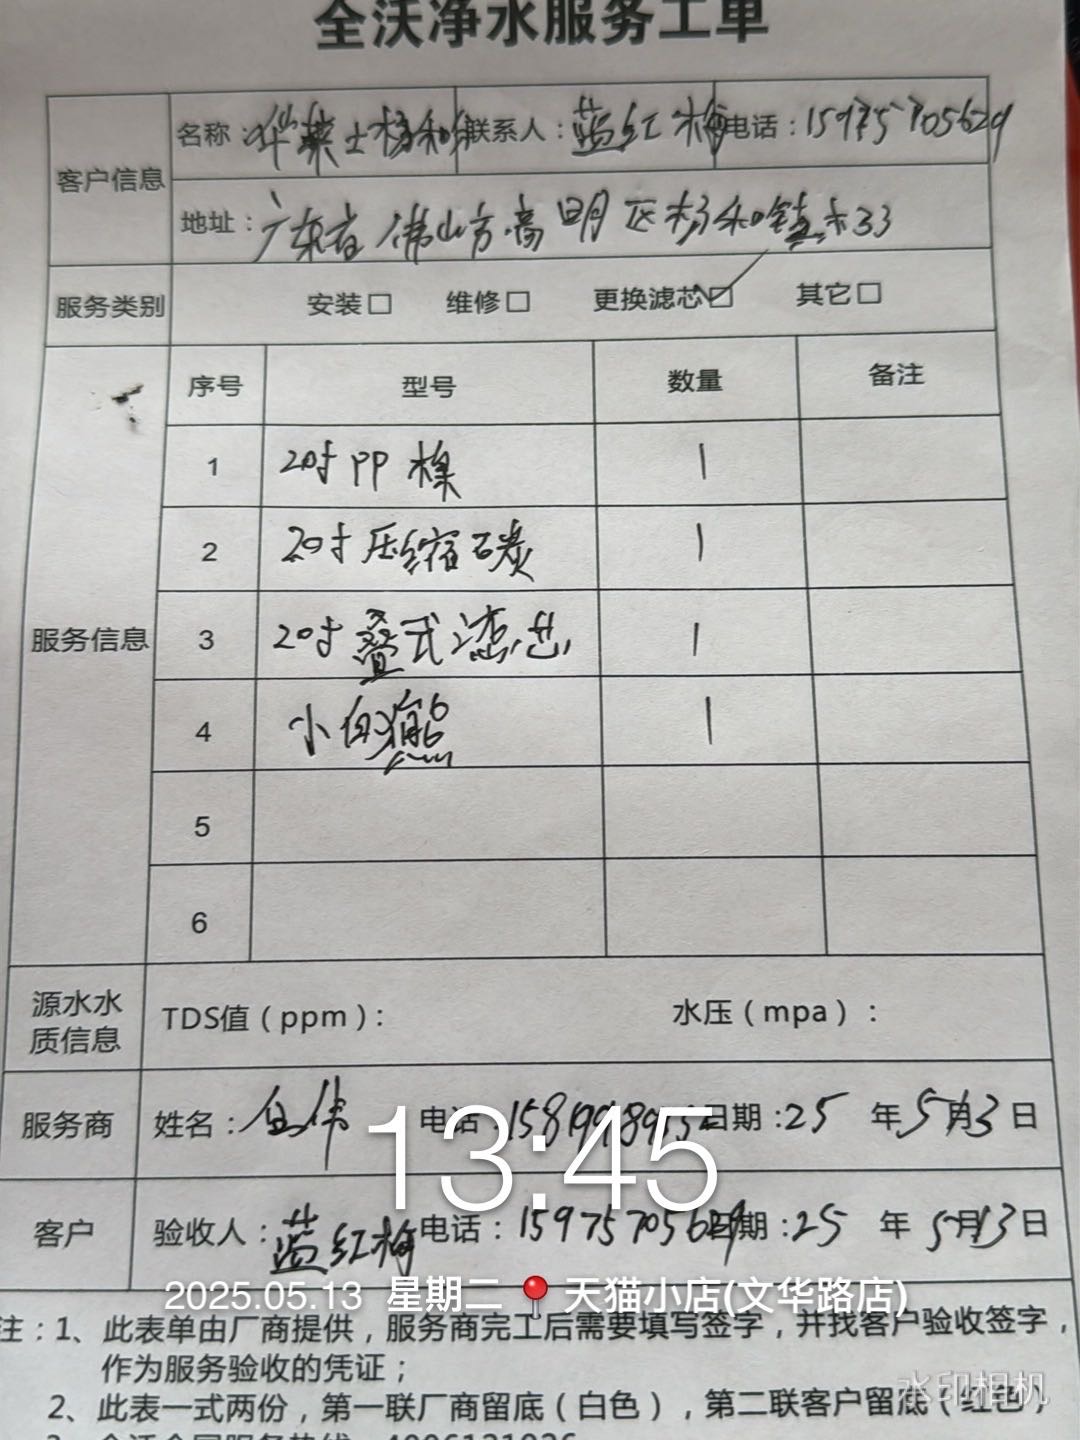 全沃净水服务工单
客户信息 名称：华莱士杨和 联系人：蓝红梅 电话：15975705629
地址：广东省佛山市高明区杨和镇
服务类别 安装□ 维修□ 更换滤芯☑ 其它□
服务信息 序号 型号 数量 备注
1 20寸PP棉 1
2 20寸压缩碳 1
3 20寸叠式滤芯 1
4 小白熊 1
5
6
源水水质信息 TDS值（ppm）： 水压（mpa）：
服务商 姓名： 电话 日期：25年5月13日
客户 验收人：蓝红梅 电话：15975705629 日期：25年5月13日
13:45
2025.05.13 星期二 天猫小店(文华路店)
注：1、此表单由厂商提供，服务商完工后需要填写签字，并找客户验收签字，
作为服务验收的凭证；
2、此表一式两份，第一联厂商留底（白色），第二联客户留底（红色）
水印相机